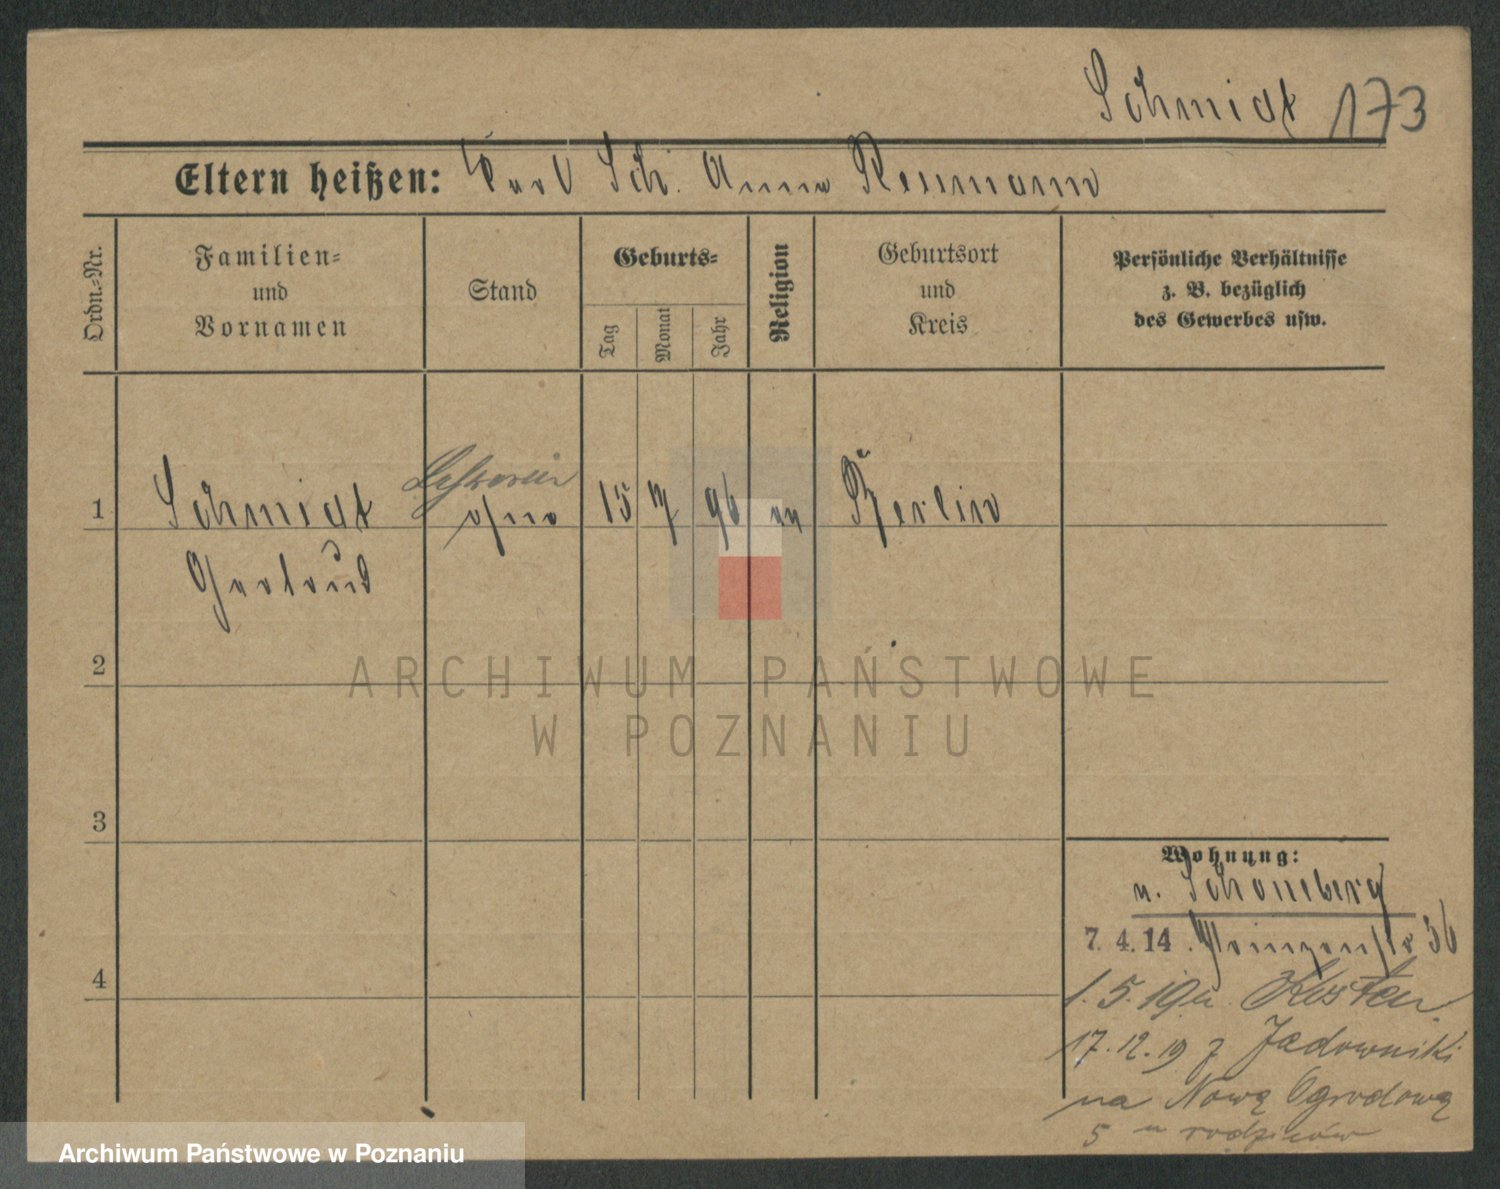 Schmidt 173
Eltern heißen: Karl Sch. Anna Neumann
Ordn.-Nr.
Familien-
und
Vornamen
Stand
Geburts-
Tag
Monat
Jahr
Religion
Geburtsort
und
Kreis
Persönliche Verhältnisse
z. B. bezüglich
des Gewerbes usw.
1 Schmidt ohne 15 7 96 Berlin
Gertrud
2
3
4
Wohnung:
n. Schöneberg
7. 4. 14
1. 5. 19 n. Kosten
17. 12. 19 z Jadowniki
na Nową Ogrodową
5 u rodziców
ARCHIWUM PAŃSTWOWE
W POZNANIU
Archiwum Państwowe w Poznaniu